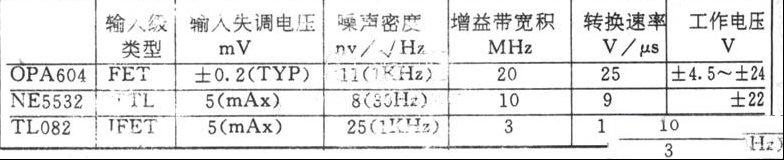 输入级 输入失调电压 噪声密度 增益带宽积 转换速率 工作电压
类型 mV nv/√Hz MHz V/μs V
OPA604 FET ±0.2(TYP) 11(1KHz) 20 25 ±4.5~±24
NE5532 TL 5(mAx) 8(30Hz) 10 9 ±22
TL082 JFET 5(mAx) 25(1KHz) 3 1 10
3 Hz